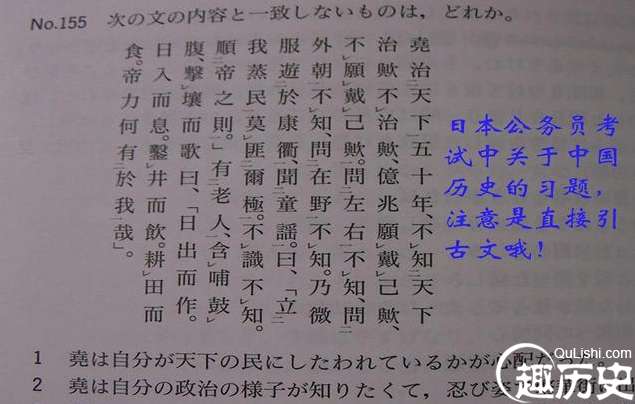 No.155 次の文の内容と一致しないものは，どれか。
堯治天下五十年、不知天下
治歟不治歟、億兆願戴己歟、
不願戴己歟。問左右不知、問
外朝不知、問在野不知。乃微
服遊於康衢、聞童謡。曰、「立
我蒸民莫匪爾極。不識不知。
順帝之則。」有老人、含哺鼓
腹、撃壌而歌曰、「日出而作。
日入而息。鑿井而飲。耕田而
食。帝力何有於我哉」。
日本公务员考
试中关于中国
历史的习题，
注意是直接引
古文哦！
1 堯は自分が天下の民にしたわれているかが心配だった。
2 堯は自分の政治の様子が知りたくて，忍び姿で
QuLishi.com
趣历史